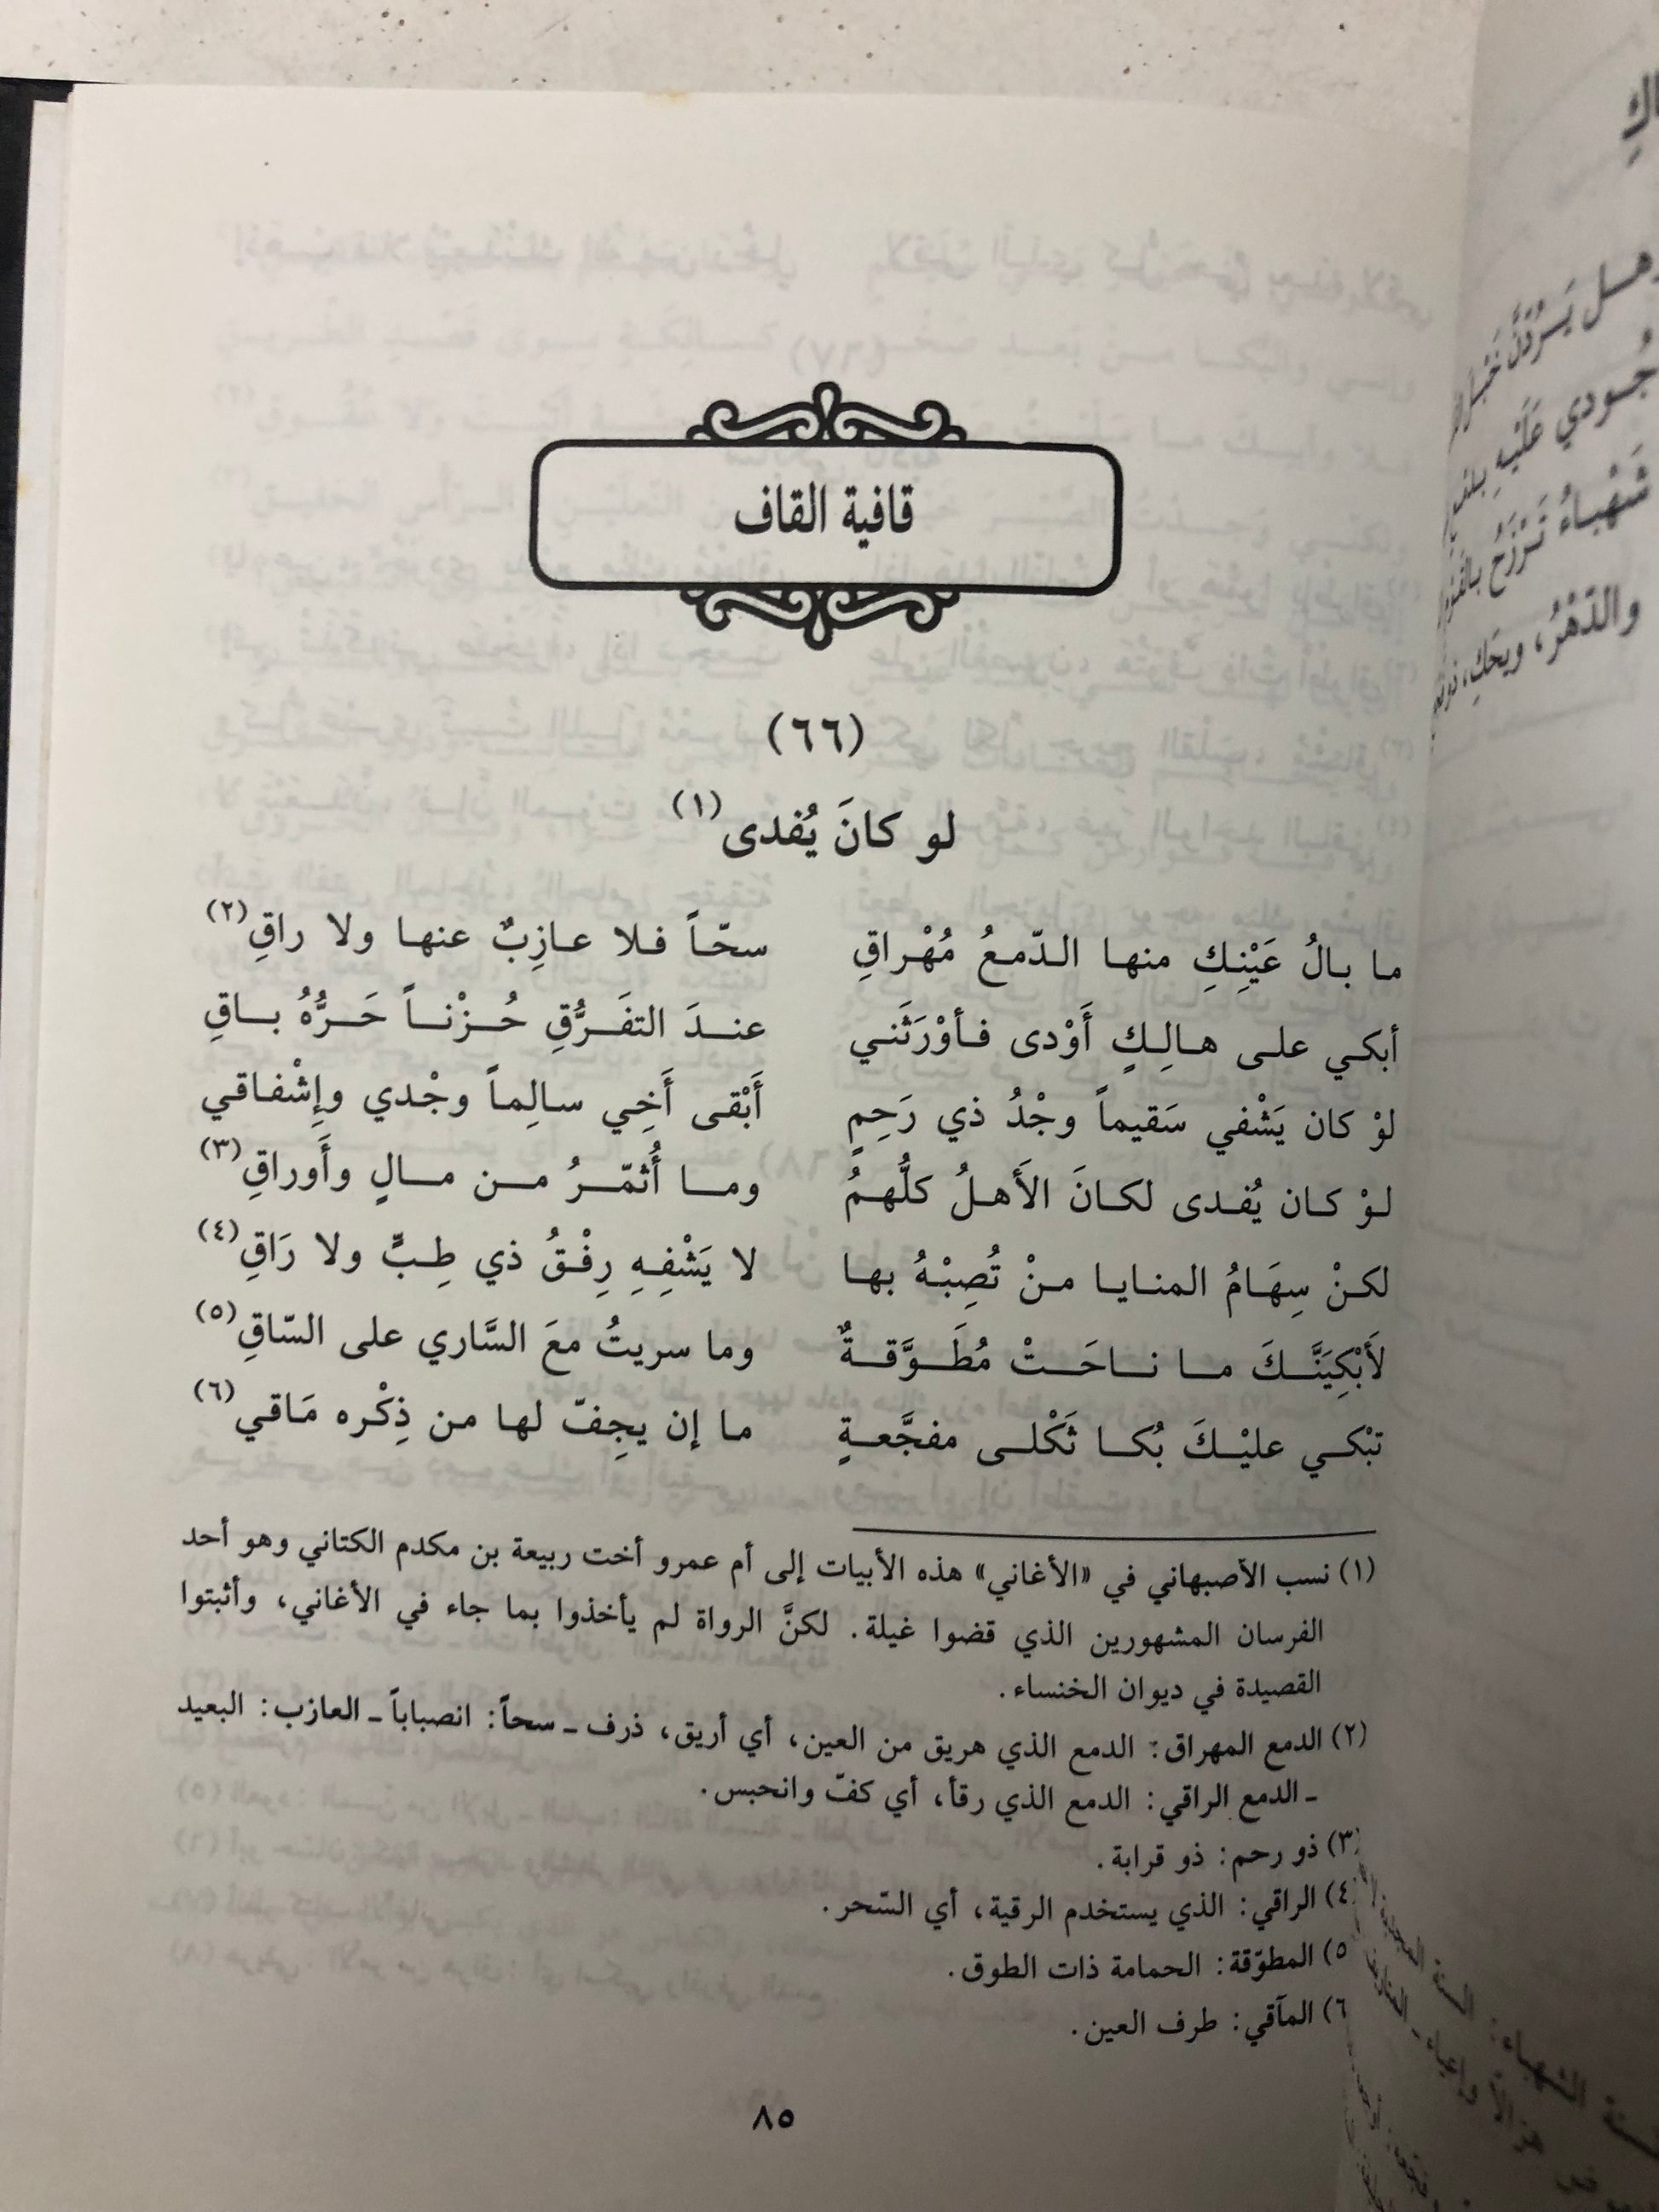 قافية القاف
(٦٦)
لو كانَ يُفدى(١)
ما بالُ عَيْنِكِ منها الدّمعُ مُهْراقِ سحّاً فلا عازِبٌ عنها ولا راقِ(٢)
أبكي على هالِكٍ أَوْدى فأوْرَثَني عندَ التفَرُّقِ حُزْناً حَرُّهُ باقِ
لوْ كان يَشْفي سَقيماً وجْدُ ذي رَحِمٍ أَبْقى أَخِي سالِماً وجْدي وإِشْفاقي
لوْ كان يُفدى لكانَ الأَهلُ كلُّهمُ وما أُثمّرُ من مالٍ وأَوراقِ(٣)
لكنْ سِهَامُ المنايا منْ تُصِبْهُ بها لا يَشْفِهِ رِفْقُ ذي طِبٍّ ولا رَاقِ(٤)
لأَبْكِيَنَّكَ ما ناحَتْ مُطَوَّقةٌ وما سريتُ معَ السَّاري على السّاقِ(٥)
تبْكي عليْكَ بُكا ثَكْلى مفجَّعةٍ ما إن يجِفّ لها من ذِكْره مَاقي(٦)
(١) نسب الأصبهاني في «الأغاني» هذه الأبيات إلى أم عمرو أخت ربيعة بن مكدم الكتاني وهو أحد
الفرسان المشهورين الذي قضوا غيلة. لكنَّ الرواة لم يأخذوا بما جاء في الأغاني، وأثبتوا
القصيدة في ديوان الخنساء.
(٢) الدمع المهراق: الدمع الذي هريق من العين، أي أريق، ذرف ـ سحاً: انصباباً ـ العازب: البعيد
ـ الدمع الراقي: الدمع الذي رقأ، أي كفّ وانحبس.
(٣) ذو رحم: ذو قرابة.
٤) الراقي: الذي يستخدم الرقية، أي السّحر.
٥) المطوّقة: الحمامة ذات الطوق.
٦) المآقي: طرف العين.
٨٥
والدّهْرُ، ويحَكِ،